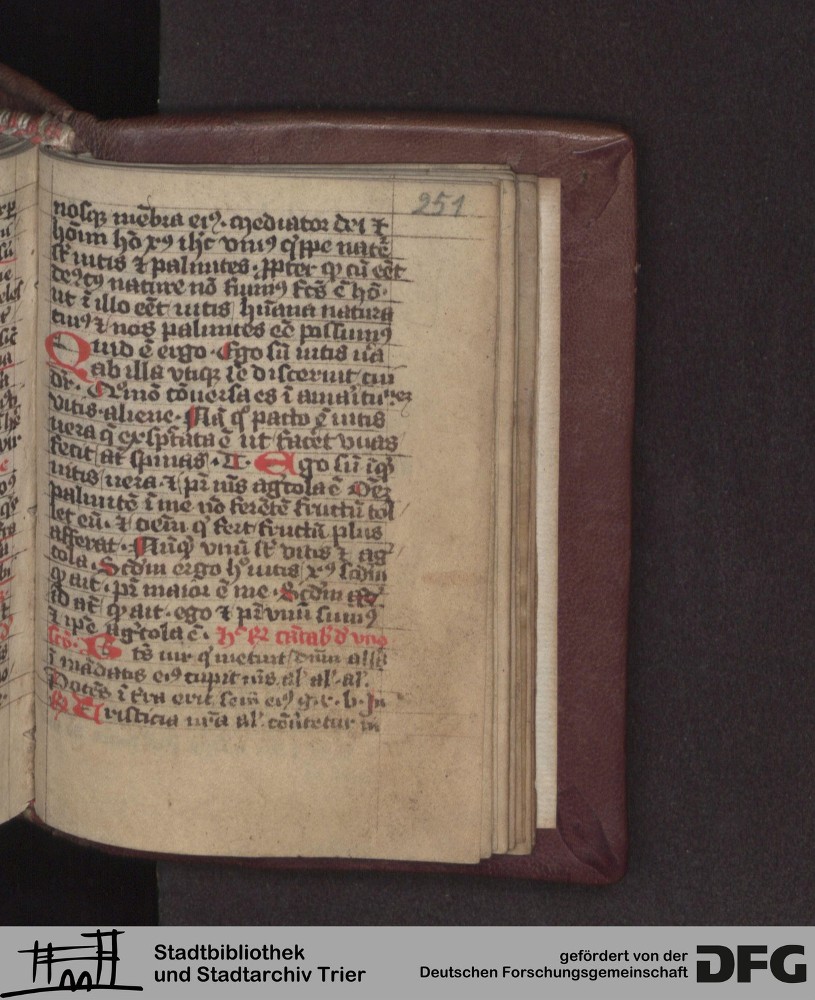 251
nosq; mēbra ei⁹. mediator dei ⁊
hōim hō xp̄s ih̄c vni⁹ q̄ppe natē
st̄ uitis ⁊ palmites. ꝓpter qꝫ cū eēt
ut ī illo eēt uitis hūana natura
cui⁹ ⁊ nos palmites eē possum⁹
Quid ē ergo. Ego sū uitis ūa
ab illa vtiqꝫ se discernit cui
dr̄. Quō cōuersa es ī amaritu
vitis aliene. Nā q° pacto ē uitis
uera q̄ exspctata ē ut facet vuas
fecit aūt spinas. Ego sū īqt
uitis uera ⁊ pr̄ m̄s agcola ē Oēꝫ
palmitē ī me nō ferētē fructū tol
let eū. ⁊ oēm q̄ fert fructū plus
afferat. Nūqd vnū st̄ vitis ⁊ ag
cola. Scdm ergo h° uitis xp̄s scdm
qd ait. pr̄ maior ē me. Scdm
id aūt qd ait. ego ⁊ pr̄ vnū sum⁹
⁊ ipē agcola ē.
tūs uir q̄ metuit dn̄m alla
ī mādatis ei⁹ cupit nīs. al' al'. al'.
Potēs ī t̄ra erit semē ei⁹ g. r. b.
risticia ūra al'. cōūtetur in
Stadtbibliothek
und Stadtarchiv Trier
gefördert von der
Deutschen Forschungsgemeinschaft
DFG